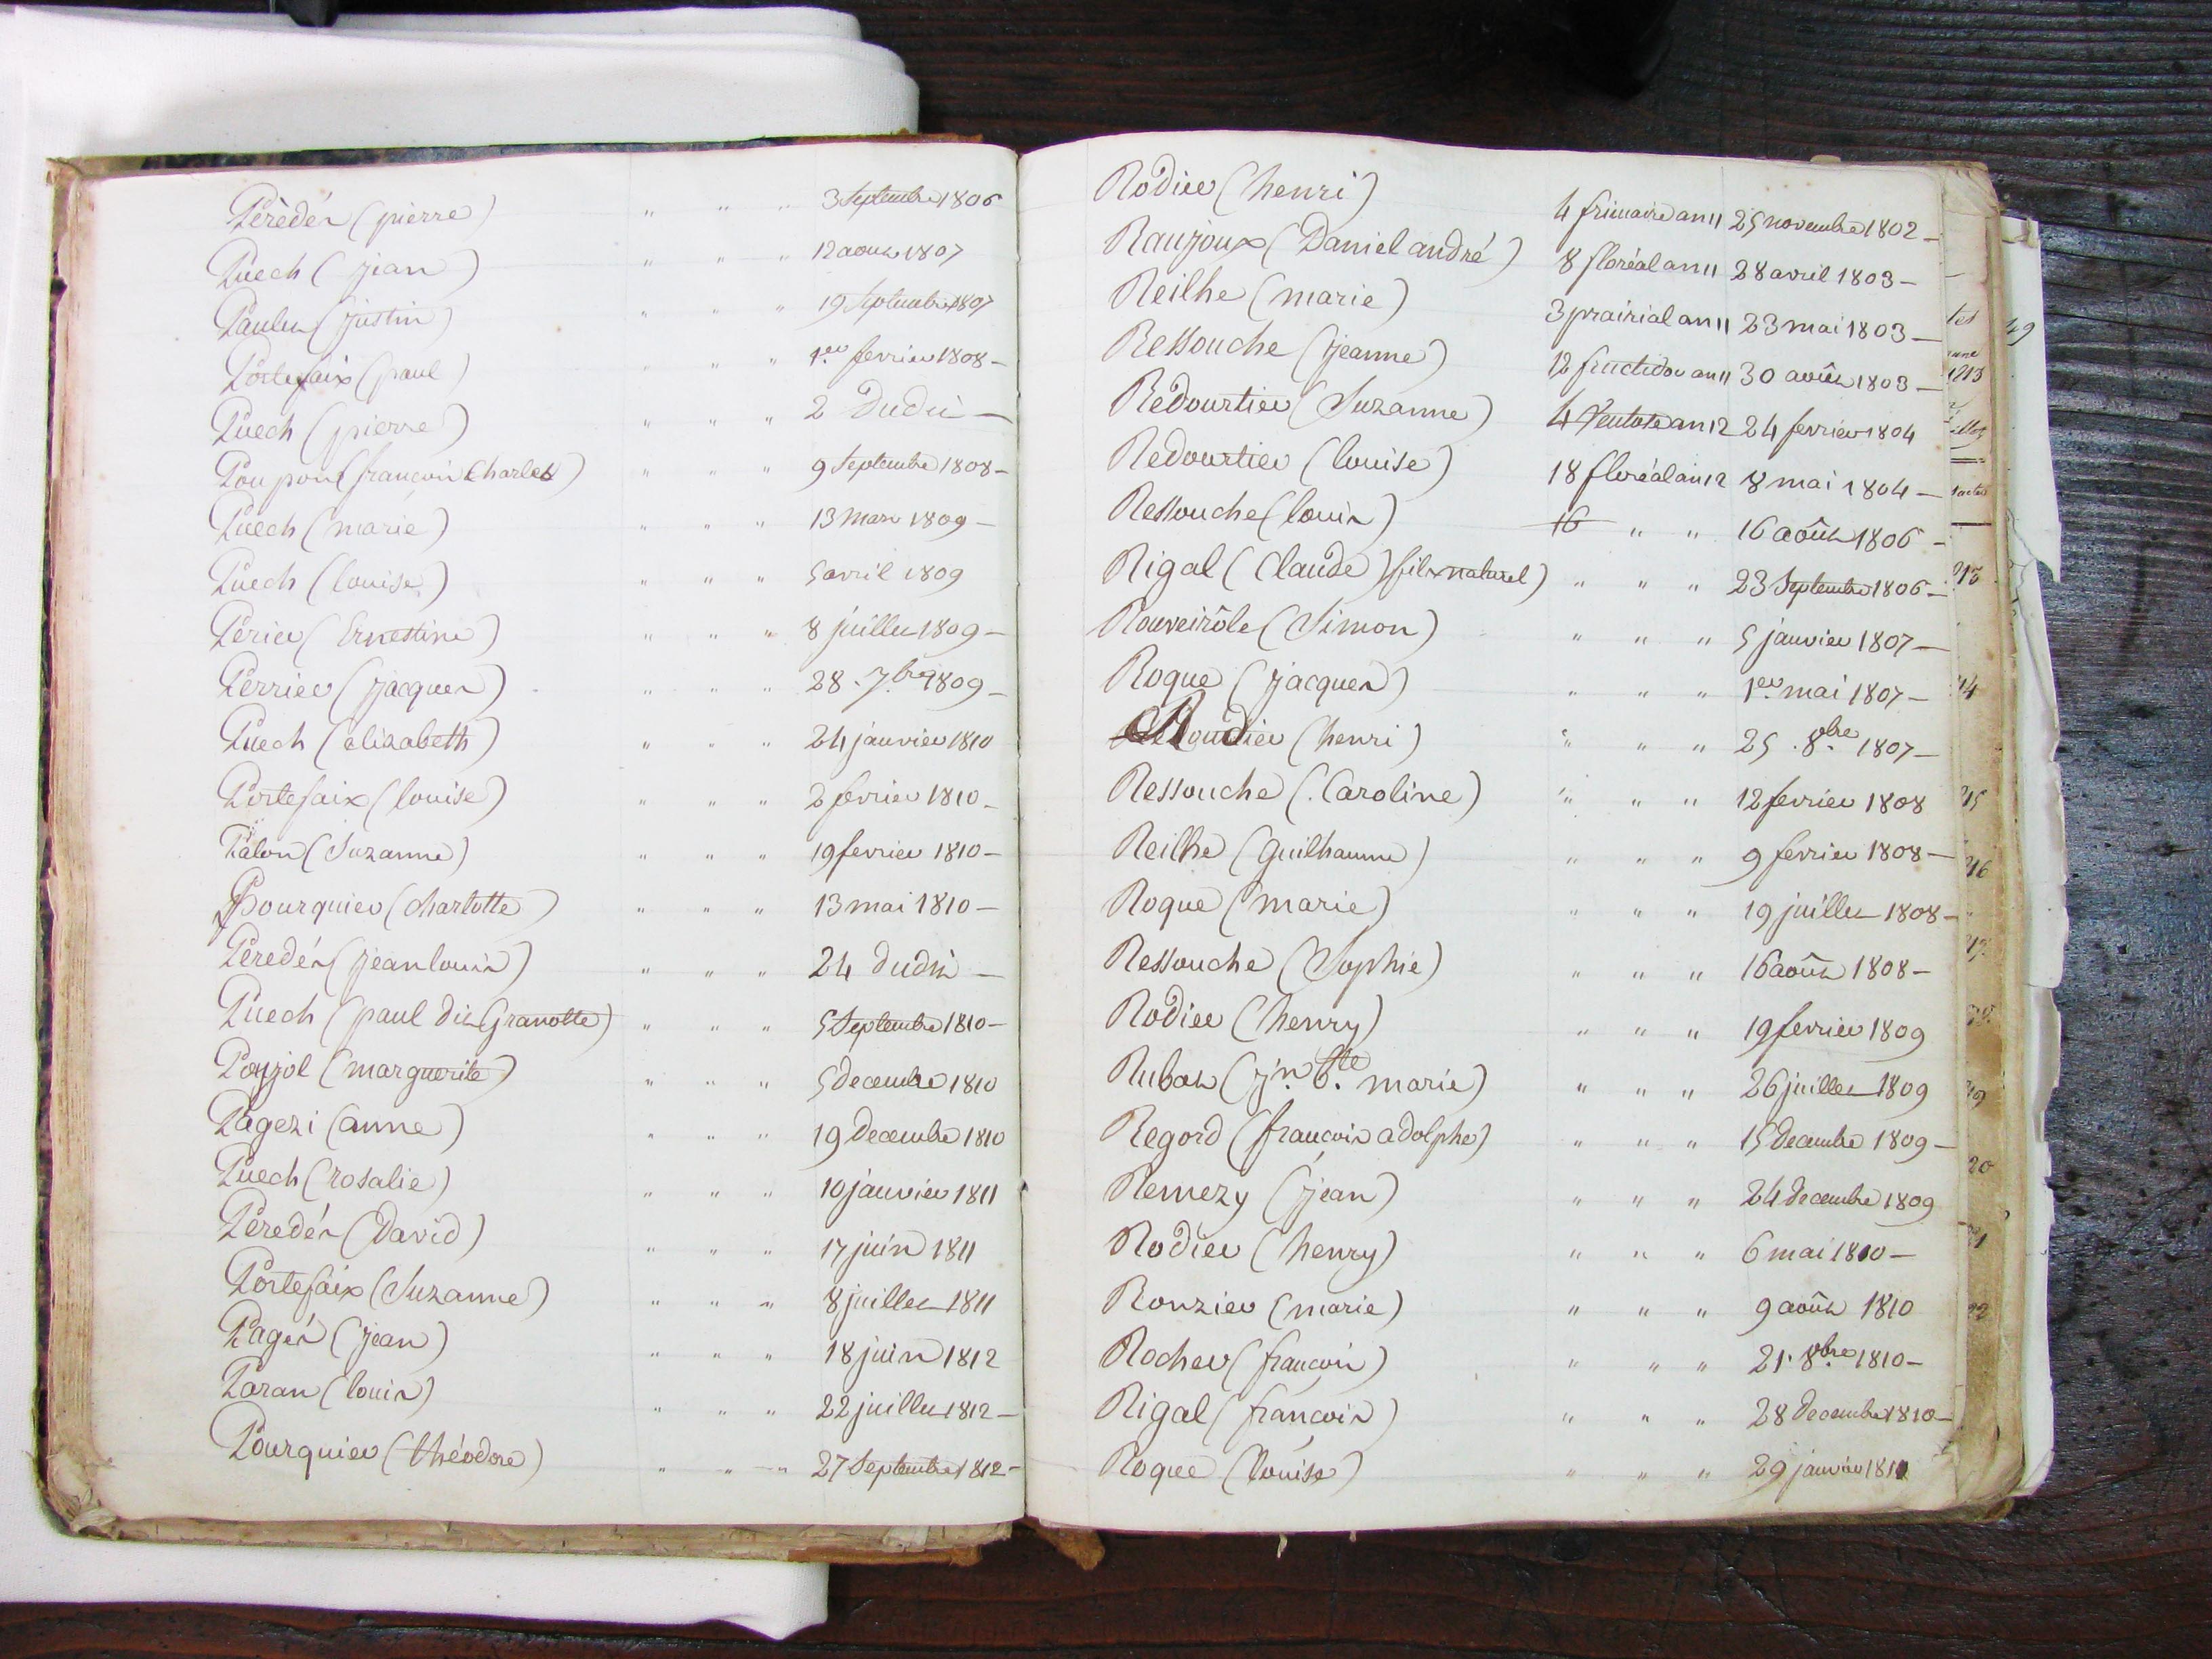 Pèredés (pierre) " " " 3 Septembre 1806
Puech (jean) " " " 12 aout 1807
Paulet (justin) " " " 19 Septembre 1807
Portefaix (paul) " " " 1.er fevrier 1808 –
Puech (pierre) " " " 2 dudit –
Poupon (francois Charles) " " " 9 Septembre 1808 –
Puech (marie) " " " 13 mars 1809 –
Puech (louise) " " " 5 avril 1809
Perier (Ernestine) " " " 8 juillet 1809 –
Perrier (jacques) " " " 28. 7.bre 1809 –
Puech (elizabeth) " " " 24 janvier 1810
Portefaix (louise) " " " 2 fevrier 1810 –
Palon (Suzanne) " " " 19 fevrier 1810 –
Pourquier (charlotte) " " " 13 mai 1810 –
Peredés (jean louis) " " " 24 dudit –
Puech (paul dit Granotte) " " " 5 Septembre 1810 –
Poujol (marguerite) " " " 5 decembre 1810
Pagezi (anne) " " " 19 decembre 1810
Puech (rosalie) " " " 10 janvier 1811
Peredés (David) " " " 17 juin 1811
Portefaix (Suzanne) " " " 8 juillet 1811
Pagés (jean) " " " 18 juin 1812
Paran (louis) " " " 22 juillet 1812 –
Pourquier (théodore) " " " 27 Septembre 1812 –
Rodier (henri) 4 frimaire an 11 25 novembre 1802 –
Raujoux (Daniel andré) 8 floréal an 11 28 avril 1803 –
Reilhe (marie) 3 prairial an 11 23 mai 1803 –
Ressouche (jeanne) 12 fructidor an 11 30 août 1803 –
Redourtier (Suzanne) 4 Ventose an 12 24 fevrier 1804
Redourtier (louise) 18 floréal an 12 8 mai 1804 –
Ressouche (louis) 16 " " 16 août 1806 –
Rigal (Claude) (fils naturel) " " " 23 Septembre 1806 –
Rouveirôle (Simon) " " " 5 janvier 1807 –
Roque (jacques) " " " 1.er mai 1807 –
Roudier (henri) " " " 25. 8.bre 1807 –
Ressouche (Caroline) " " " 12 fevrier 1808
Reilhe (Guilhaume) " " " 9 fevrier 1808 –
Roque (marie) " " " 19 juillet 1808 –
Ressouche (Sophie) " " " 16 août 1808 –
Rodier (henry) " " " 19 fevrier 1809
Rubat (jn. bte. marie) " " " 26 juillet 1809
Regord (francois adolphe) " " " 15 decembre 1809 –
Remezy (jean) " " " 24 decembre 1809
Rodier (henry) " " " 6 mai 1810 –
Ronzier (marie) " " " 9 août 1810
Rocher (francois) " " " 21. 8.bre 1810 –
Rigal (francois) " " " 28 decembre 1810 –
Roque (louise) " " " 29 janvier 1811